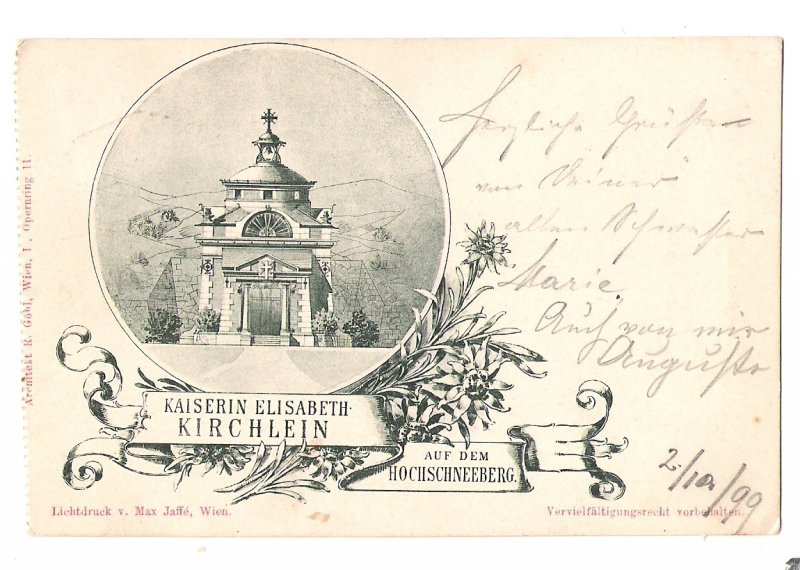 Architekt R. Göbl, Wien, I., Opernring 11
KAISERIN ELISABETH-
KIRCHLEIN
AUF DEM
HOCHSCHNEEBERG.
Herzliche Grüße
von Deiner
alten Schwester
Marie.
Auch von mir
Auguste
2./10./99
Lichtdruck v. Max Jaffé, Wien.
Vervielfältigungsrecht vorbehalten.